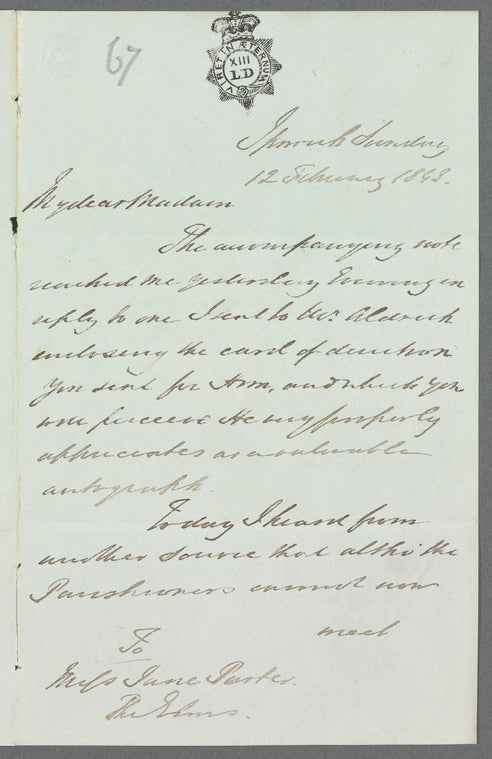 67
VIRET IN ÆTERNUM
XIII
LD
Ipswich Sunday
12 February 1843.
My dear Madam
The accompanying note
reached me yesterday Evening in
reply to one I sent to Mr. Aldrich
enclosing the card of direction
you sent for Him, and which you
will perceive He very properly
appreciates as a valuable
autograph.
Today I heard from
another source that altho' the
Parishioners cannot now
meet
To
Miss Jane Porter.
The Elms.